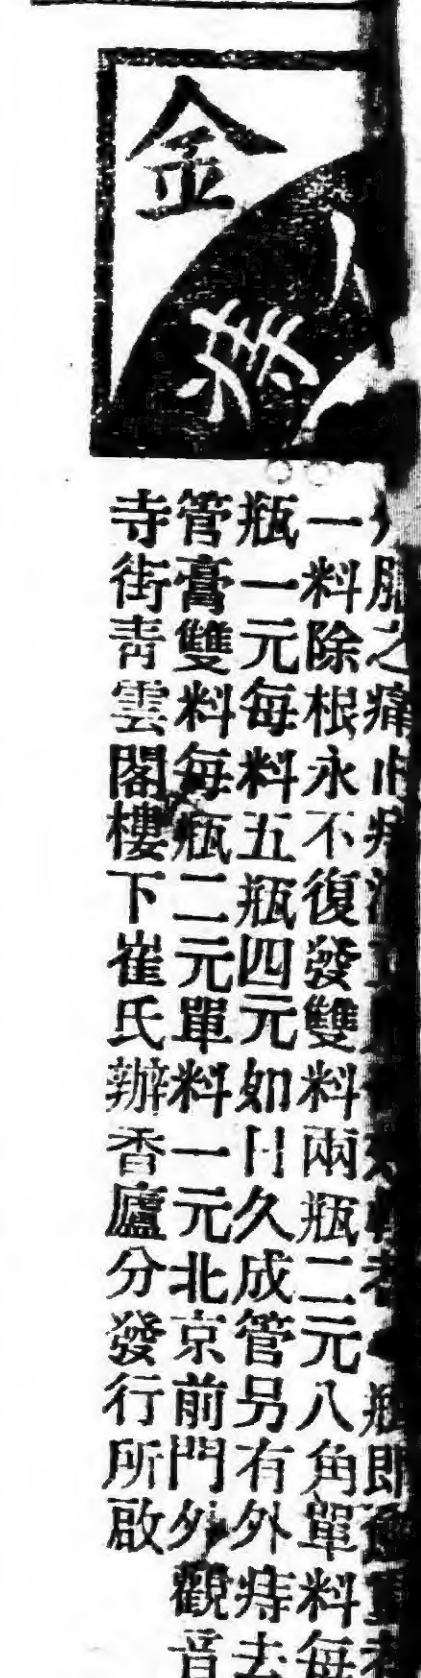 金
痔
之痛止
瓶即愈重者
一料除根永不復發雙料兩瓶二元八角單料每
瓶一元每料五瓶四元如日久成管另有外痔去
管膏雙料每瓶二元單料一元北京前門外觀音
寺街青雲閣樓下崔氏瓣香廬分發行所啟